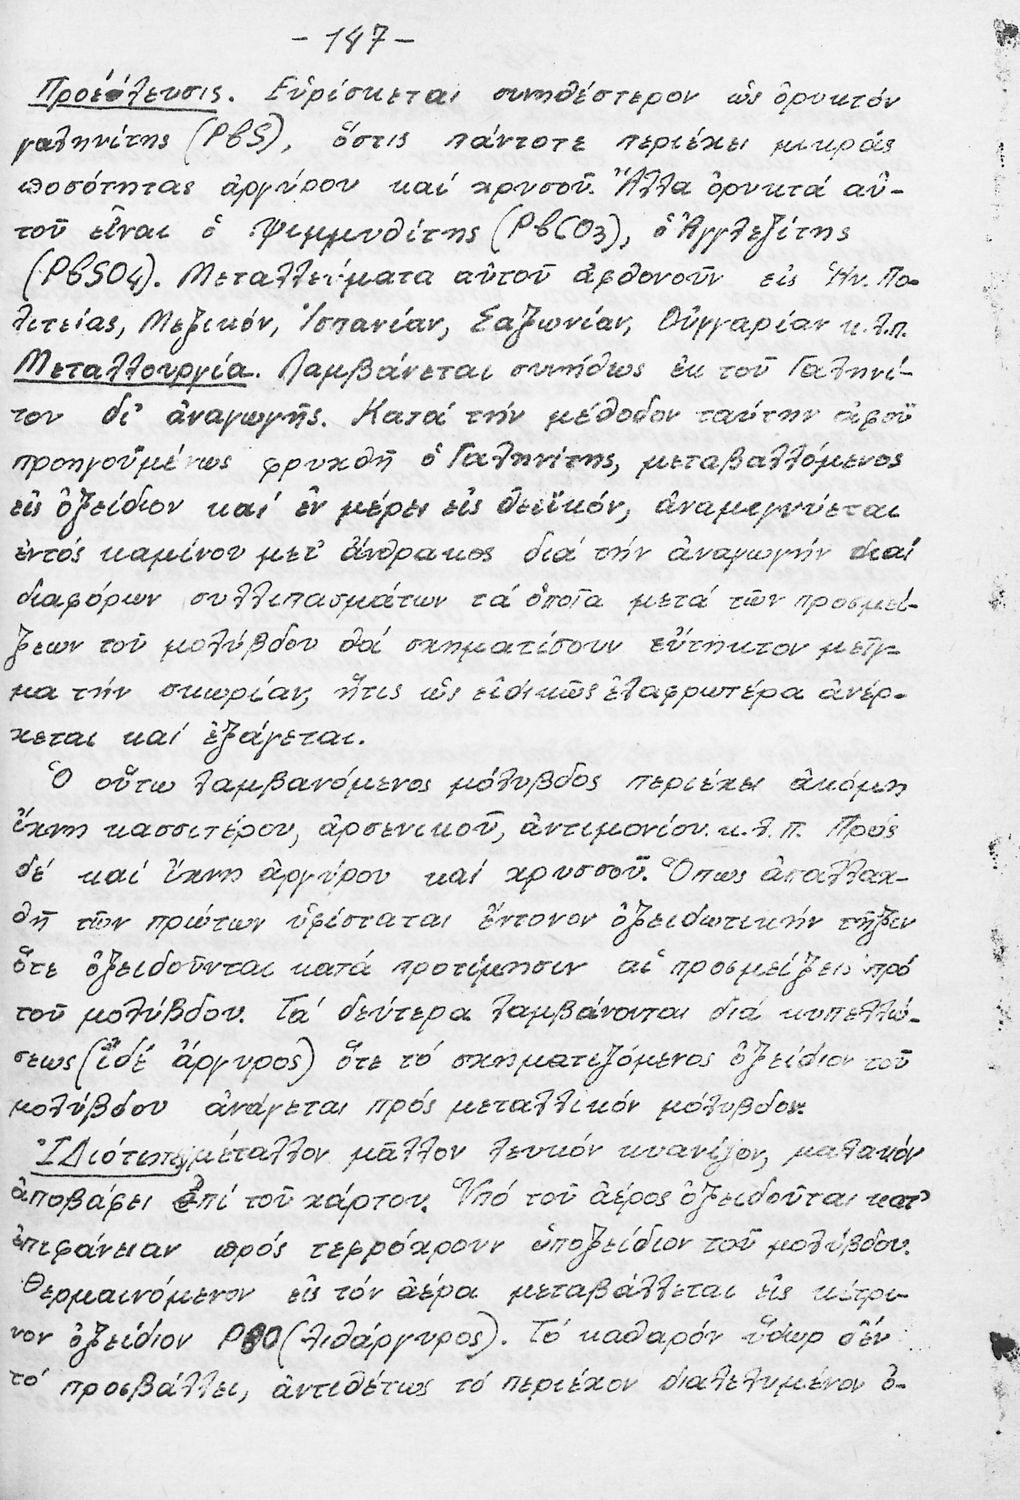 - 147 -
Προέλευσις. Εὑρίσκεται συνηθέστερον ὡς ὀρυκτόν
γαληνίτης (PbS), ὅστις πάντοτε περιέχει μικράς
ποσότητας ἀργύρου καί χρυσοῦ. Ἄλλα ὀρυκτά αὐ-
τοῦ εἶναι ὁ Ψιμμυθίτης (PbCO3), ὁ Ἀγγλεζίτης
(PbSO4). Μεταλλεύματα αὐτοῦ ἀφθονοῦν εἰς Ἡν. Πο-
λιτείας, Μεξικόν, Ἱσπανίαν, Σαξωνίαν, Οὑγγαρίαν κ.λ.π.
Μεταλλουργία. Λαμβάνεται συνήθως ἐκ τοῦ Γαληνί-
του δι' ἀναγωγῆς. Κατά τήν μέθοδον ταύτην ἀφοῦ
προηγουμένως φρυχθῆ ὁ Γαληνίτης, μεταβαλλόμενος
εἰς ὀξείδιον καί ἐν μέρει εἰς θειϊκόν, ἀναμιγνύεται
ἐντός καμίνου μετ' ἄνθρακος διά τήν ἀναγωγήν καί
διαφόρων συλλιπασμάτων τά ὁποῖα μετά τῶν προσμεί-
ξεων τοῦ μολύβδου θά σχηματίσουν εὔτηκτον μεῖγ-
μα τήν σκωρίαν, ἥτις ὡς εἰδικῶς ἐλαφρωτέρα ἀνέρ-
χεται καί ἐξάγεται.
Ὁ οὕτω λαμβανόμενος μόλυβδος περιέχει ἀκόμη
ἴχνη κασσιτέρου, ἀρσενικοῦ, ἀντιμονίου κ.λ.π. Πρός
δέ καί ἴχνη ἀργύρου καί χρυσσοῦ. Ὅπως ἀπαλλαχ-
θῆ τῶν πρώτων ὑφίσταται ἔντονον ὀξειδωτικήν τῆξιν
ὅτε ὀξειδοῦνται κατά προτίμησιν αἱ προσμείξεις πρό
τοῦ μολύβδου. Τά δεύτερα λαμβάνονται διά κυπελλώ-
σεως (ἰδέ ἄργυρος) ὅτε τό σχηματιζόμενος ὀξείδιον τοῦ
μολύβδου ἀνάγεται πρός μεταλλικόν μόλυβδον.
Ἰδιότητες μέταλλον μᾶλλον λευκόν κυανίζον, μαλακόν
ἀποβάφει ἐπί τοῦ χάρτου. Ὑπό τοῦ ἀέρος ὀξειδοῦται κατ'
ἐπιφάνειαν πρός τεφρόχρουν ὑποξείδιον τοῦ μολύβδου.
Θερμαινόμενον εἰς τόν ἀέρα μεταβάλλεται εἰς κίτρι-
νον ὀξείδιον PbO (λιθάργυρος). Τό καθαρόν ὕδωρ δέν
τό προσβάλλει, ἀντιθέτως τό περιέχον διαλελυμένον ὀ-